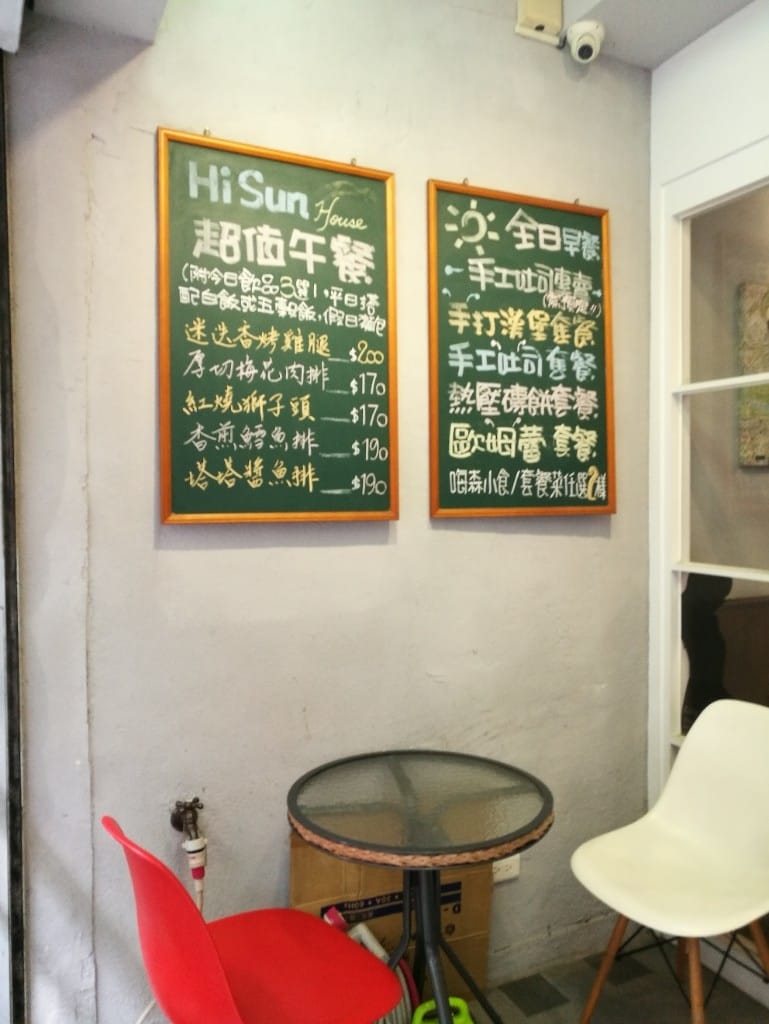 Hi Sun House
超值午餐
(附今日飲品3選1,平日搭
配白飯或五穀飯,假日麵包
迷迭香烤雞腿 $200
厚切梅花肉排 $170
紅燒獅子頭 $170
香煎鱈魚排 $190
塔塔醬魚排 $190
全日早餐
手工吐司專賣
手打漢堡套餐
手工吐司套餐
熱壓磚餅套餐
歐姆蕾套餐
呣森小食/套餐菜任選2樣